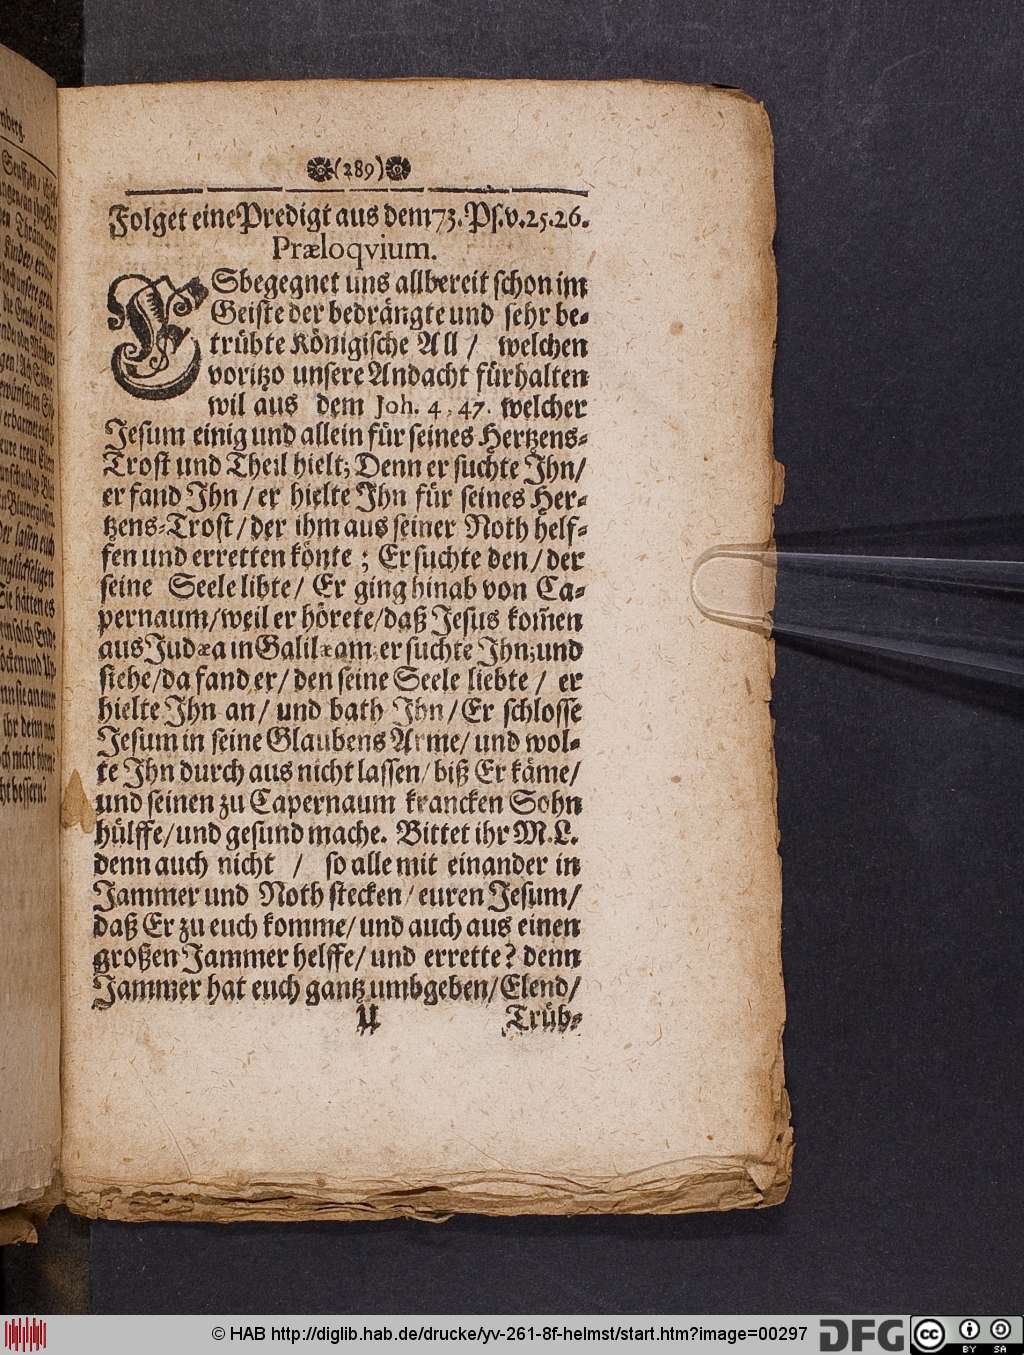 (289)
Folget eine Predigt aus dem 73. Ps. v. 25. 26.
Præloqvium.
ES begegnet uns allbereit schon im
Geiste der bedrängte und sehr be-
trübte Königische All / welchen
voritzo unsere Andacht fürhalten
wil aus dem Joh. 4, 47. welcher
Jesum einig und allein für seines Hertzens-
Trost und Theil hielt; Denn er suchte Ihn/
er fand Ihn / er hielte Ihn für seines Her-
tzens-Trost / der ihm aus seiner Noth helf-
fen und erretten könte ; Er suchte den / der
seine Seele libte / Er ging hinab von Ca-
pernaum / weil er hörete / daß Jesus kom̃en
aus Judæa in Galilæam; er suchte Ihn; und
siehe / da fand er / den seine Seele liebte / er
hielte Ihn an / und bath Ihn / Er schlosse
Jesum in seine Glaubens Arme / und wol-
te Ihn durch aus nicht lassen / biß Er käme /
und seinen zu Capernaum krancken Sohn
hülffe / und gesund mache. Bittet ihr M. L.
denn auch nicht / so alle mit einander in
Jammer und Noth stecken / euren Jesum /
daß Er zu euch komme / und auch aus einen
großen Jammer helffe / und errette? denn
Jammer hat euch gantz umbgeben / Elend /
U Trüb-
© HAB http://diglib.hab.de/drucke/yv-261-8f-helmst/start.htm?image=00297
DFG
cc BY SA